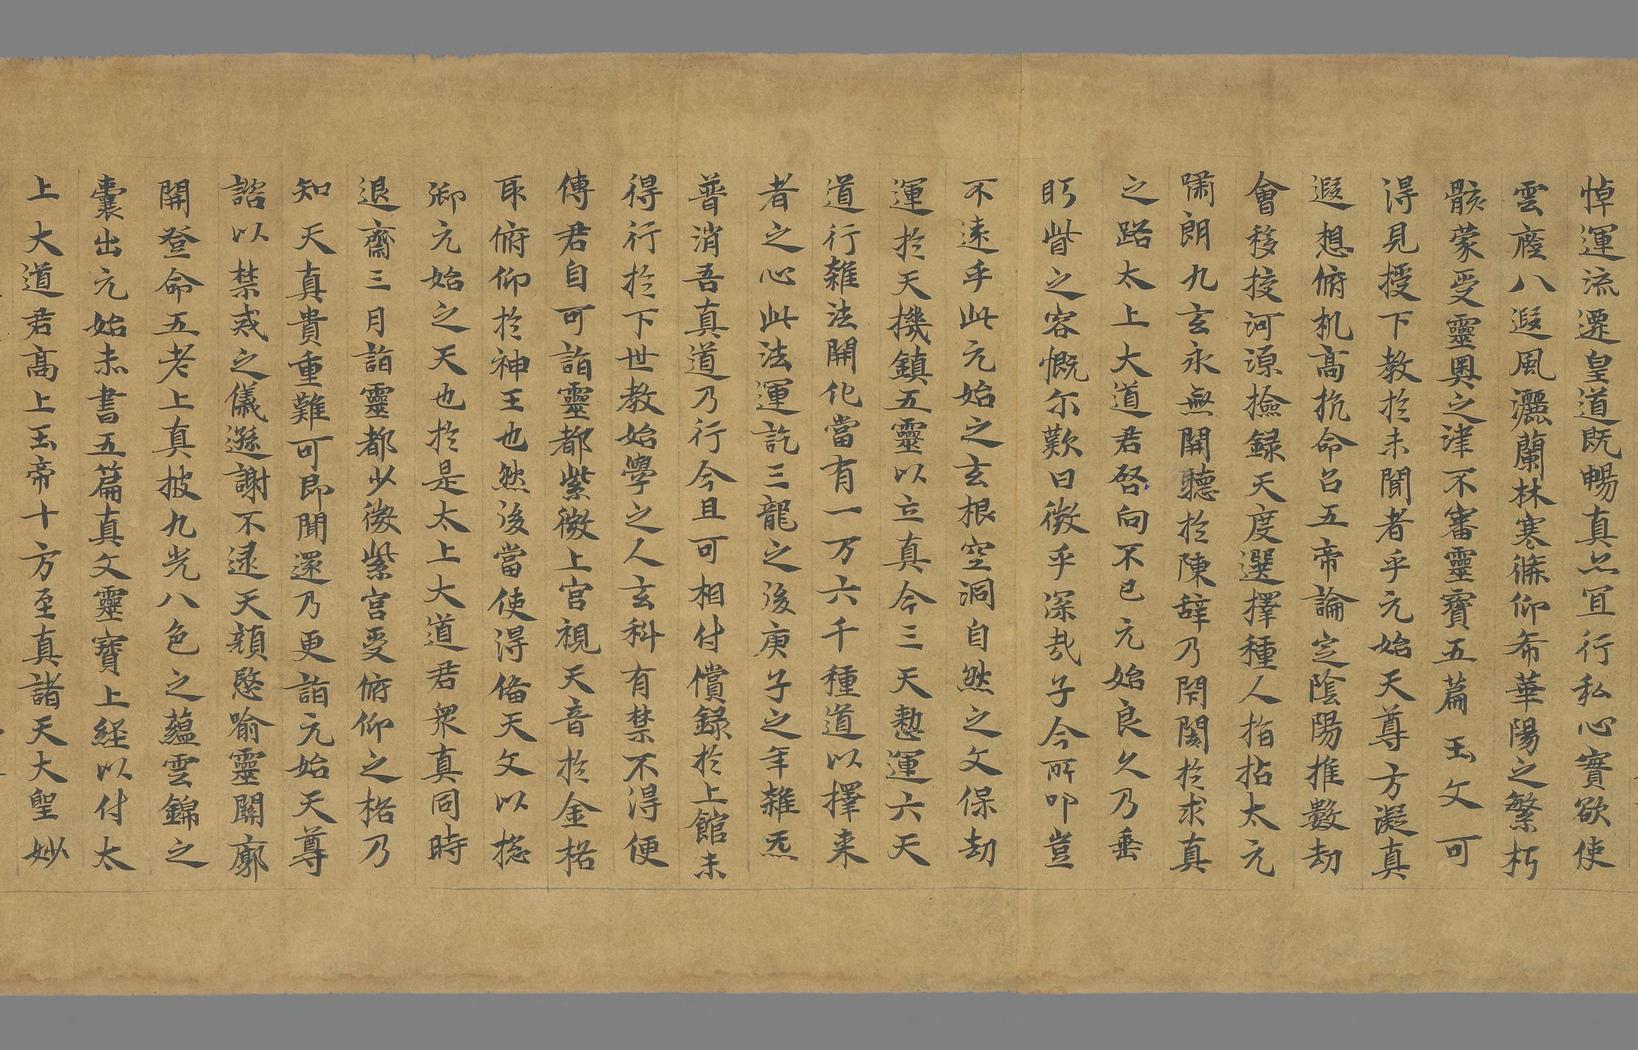 悼運流遷皇道既暢真亦宜行私心實欲使
雲廕八遐風灑蘭林寒條仰希華陽之繁朽
骸蒙受靈奧之津不審靈寶五篇玉文可
得見授下教於未聞者乎元始天尊方凝真
遐想俯机高抗命召五帝論定陰陽推數劫
會移按河源撿錄天度選擇種人指拈太元
嘯朗九玄永無開聽於陳辞乃閇闔於求真
之路太上大道君啓向不已元始良久乃垂
眄眥之容慨尒歎曰微乎深哉子今所叩豈
不遠乎此元始之玄根空洞自然之文保劫
運於天機鎮五靈以立真今三天懃運六天
道行雜法開化當有一万六千種道以擇来
者之心此法運訖三龍之後庚子之年雜炁
普消吾真道乃行今且可相付償録於上館未
得行於下世教始學之人玄科有禁不得便
傳君自可詣靈都紫微上宮視天音於金格
取俯仰於神王也然後當使得俻天文以揔
御元始之天也於是太上大道君衆真同時
退齋三月詣靈都少微紫宮受俯仰之格乃
知天真貴重難可即聞還乃更詣元始天尊
諮以禁戒之儀遜謝不逮天顔愍喻靈關廓
開登命五老上真披九光八色之蘊雲錦之
囊出元始赤書五篇真文靈寶上経以付太
上大道君高上玉帝十方至真諸天大聖妙